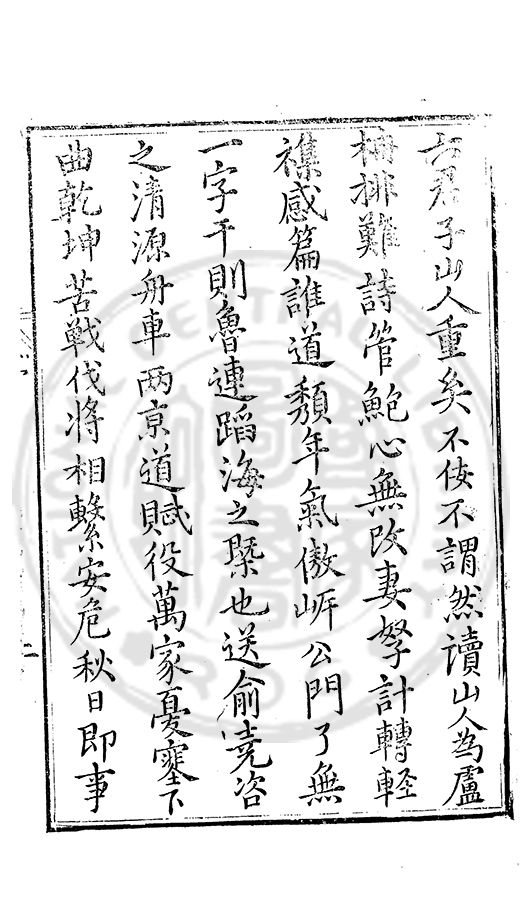 六君子山人重矣不佞不謂然讀山人為盧
柟排難詩管鮑心無改妻孥計轉輕
襍感篇誰道頹年氣傲岸公門了無
一字干則魯連蹈海之槩也送俞堯咨
之清源舟車兩京道賦役萬家憂塞下
曲乾坤苦戰伐將相繫安危秋日即事